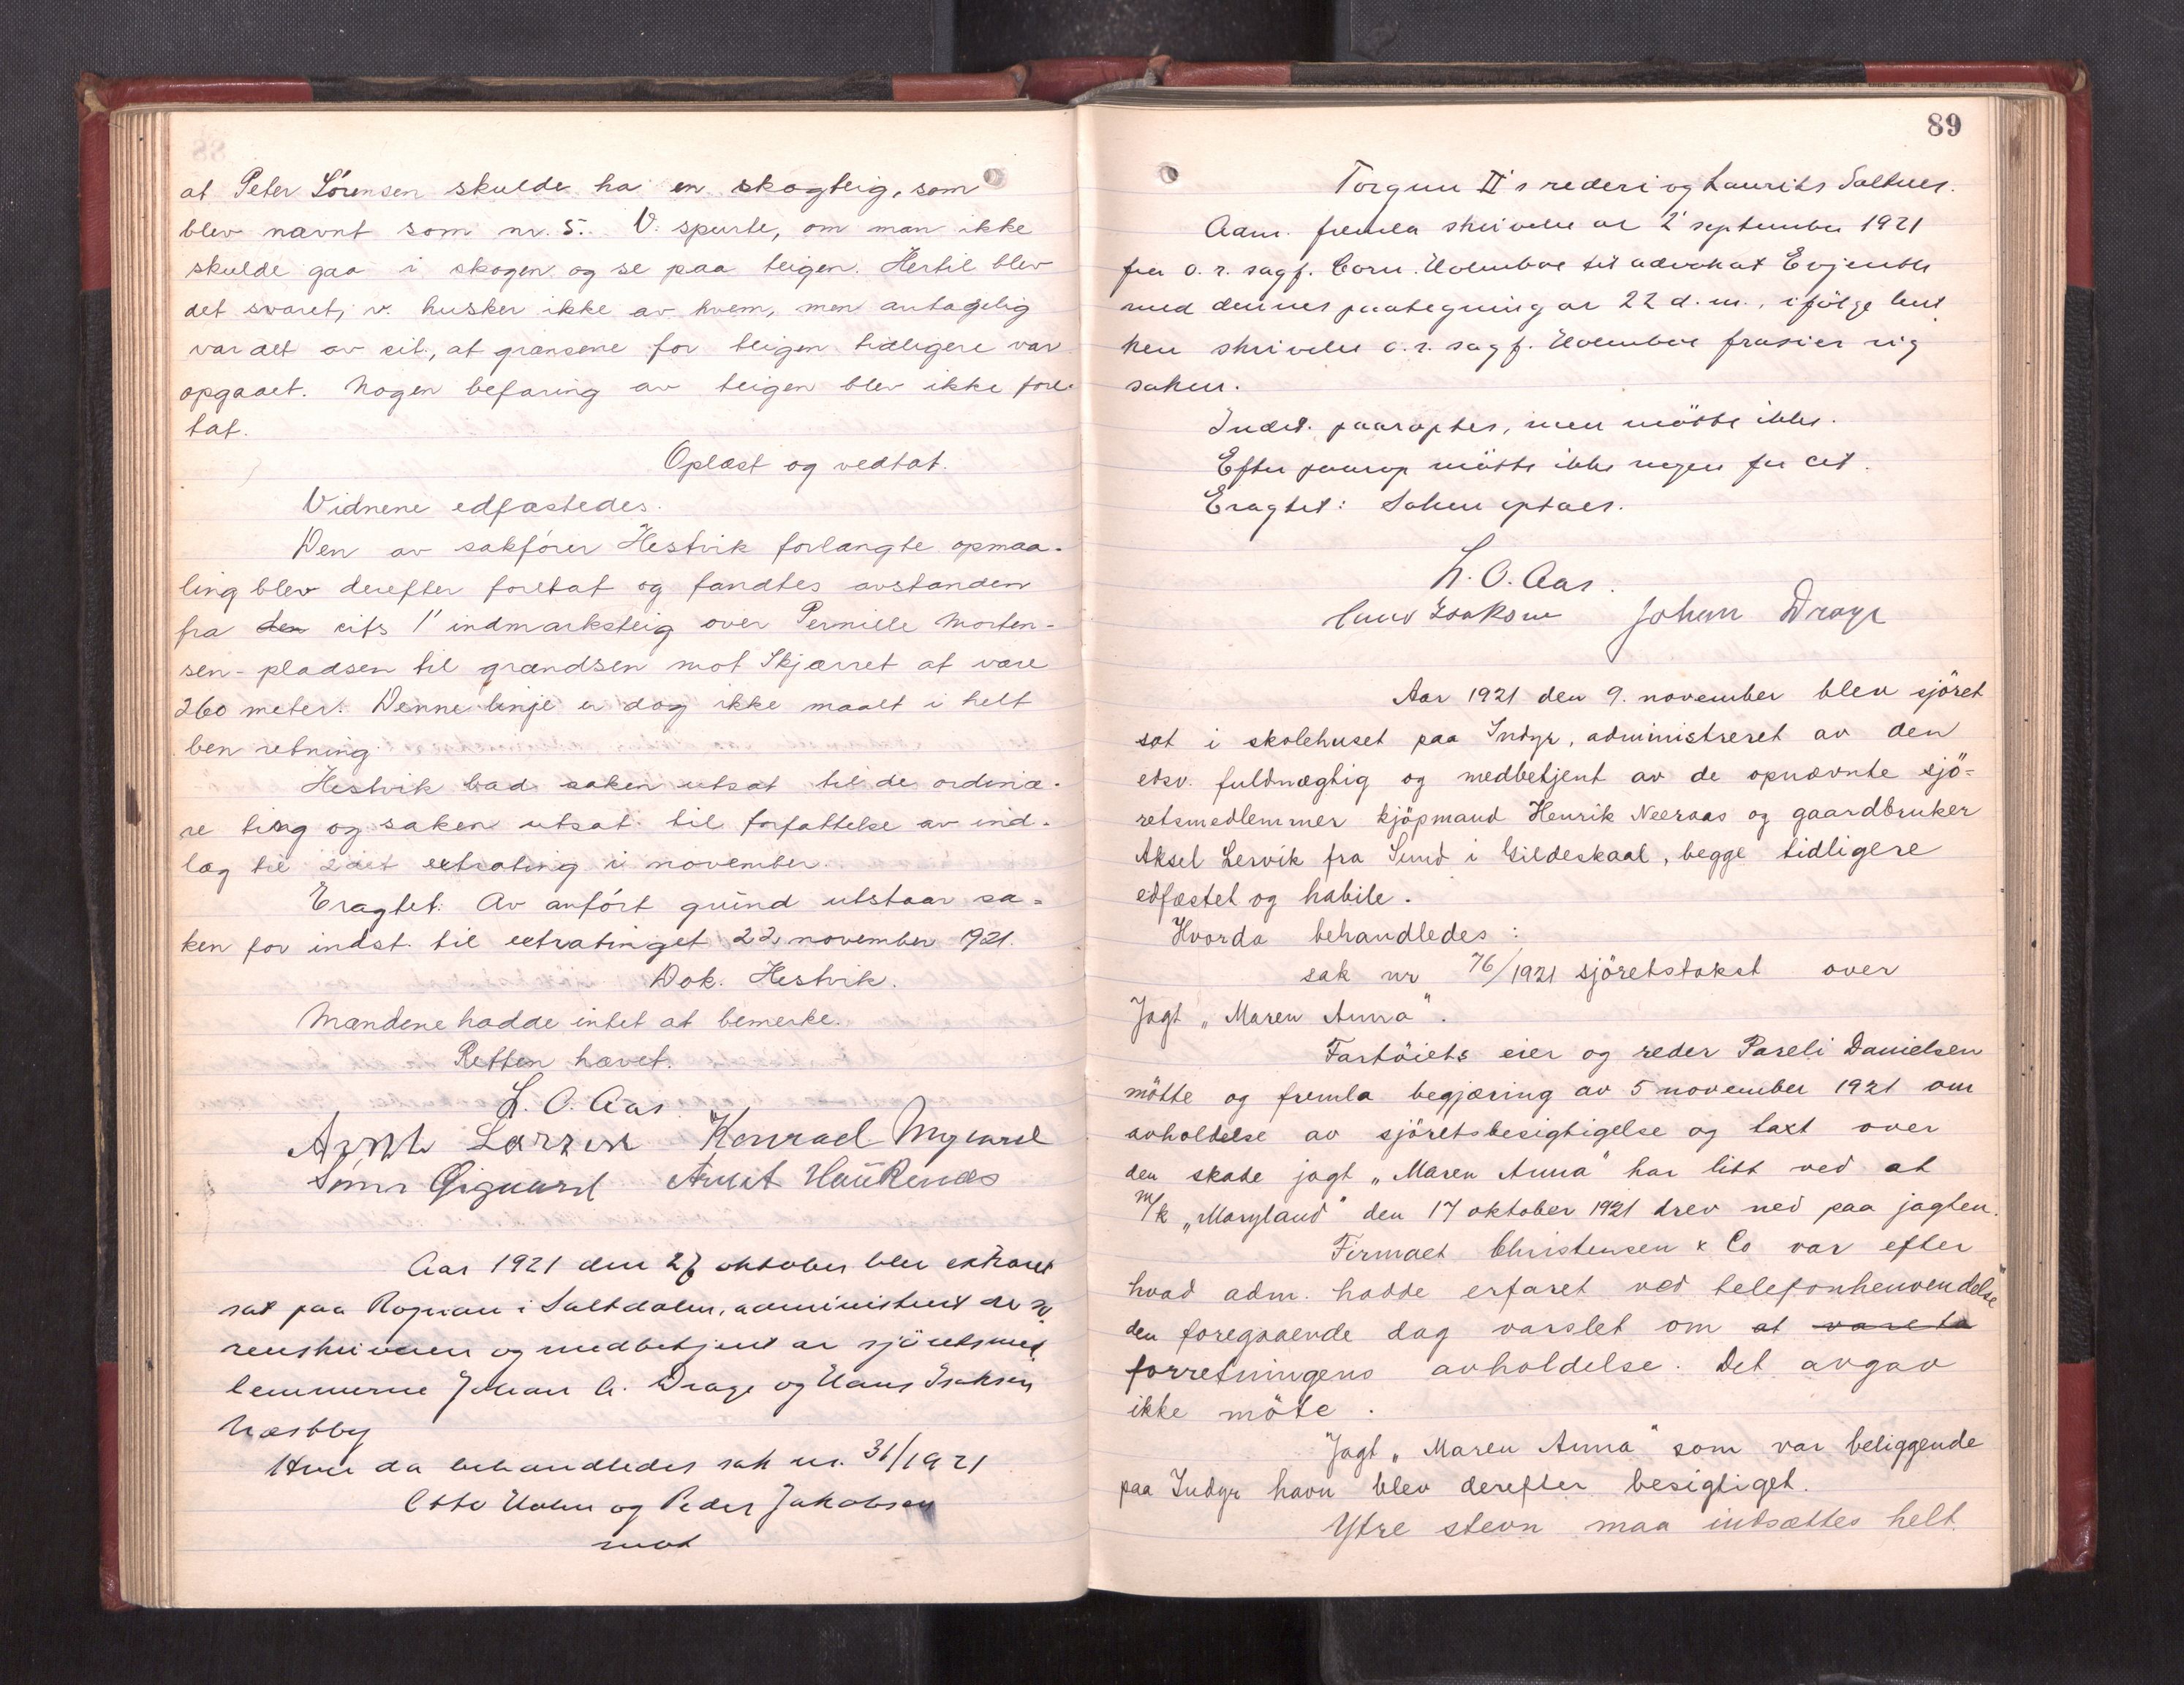 at Peter Sörensen skulde ha en skogteig, som
blev nævnt som nr. 5. V. spurte, om man ikke
skulde gaa i skogen og se paa teigen. Hertil blev
det svaret, v. husker ikke av hvem, men antagelig
var det av cit., at grænsene for teigen tidligere var
opgaaet. Nogen befaring av teigen blev ikke fore-
tat.
Oplæst og vedtat.
Vidnene edfæstedes.
Den av sakförer Hestvik forlangte opmaa-
ling blev derefter foretat og fandtes avstanden
fra den cits 1' indmarksteig over Pernille Morten-
sen-pladsen til grændsen mot Skjærret at være
260 meter. Denne linje er dog ikke maalt i helt
ben retning.
Hestvik bad saken utsat til de ordinæ-
re ting og saken utsat til forfattelse av ind-
læg til 2det extrating i november.
Eragtet: Av anfört grund utstaar sa-
ken for indst. til extratinget 22 november 1921.
Dok. Hestvik.
Mændene hadde intet at bemerke.
Retten hævet.
L. O. Aas.
Arnt Larsen Konrad Myrvold
Arnt Haukenæs
Aar 1921 den 27 oktober blev extraret
sat paa Rognan i Saltdalen, administrert av so-
renskriveren og medbetjent av sjöretsmed
lemmerne Johan A. Drage og Hans Isaksen
Næstby
Hvor da behandledes sak nr. 31/1921
Otto Holm og Peder Jakobsen
mot
89
Torgun II's rederi og Laurits Saltnes.
Adm. fremla skrivelse av 2' september 1921
fra o. r. sagf. Corn. Holmboe til advokat Evjenth
med dennes paategning av 22 d. m., ifölge hvil
ken skrivelse o. r. sagf. Holmboe frasier sig
saken.
Indst. paaroptes, men mötte ikke.
Efter paarop mötte ikke nogen for cit.
Eragtet: Saken optaes.
L. O. Aas.
Hans Isaksen Johan Drage
Aar 1921 den 9. november blev sjöret
sat i skolehuset paa Indyr, administreret av den
edsv. fuldmægtig og medbetjent av de opnævnte sjö-
retsmedlemmer kjöpmand Henrik Neeraas og gaardbruker
Aksel Lervik fra Sund i Gildeskaal, begge tidligere
edfæstet og habile.
Hvorda behandledes:
sak nr 76/1921 sjöretstakst over
Jagt "Maren Anna".
Fartöiets eier og reder Pareli Danielsen
mötte og fremla begjæring av 5 november 1921 om
avholdelse av sjöretsbesigtigelse og taxt over
den skade jagt "Maren Anna" har litt ved at
m/k "Maryland" den 17 oktober 1921 drev ned paa jagten.
Firmaet Christensen & Co var efter
hvad adm. hadde erfaret ved telefonhenvendelse
den foregaaende dag varslet om at vareta
forretningens avholdelse. Det avgav
ikke möte.
Jagt "Maren Anna" som var beliggende
paa Indyr havn blev derefter besigtiget.
Ytre stevn maa indsættes helt